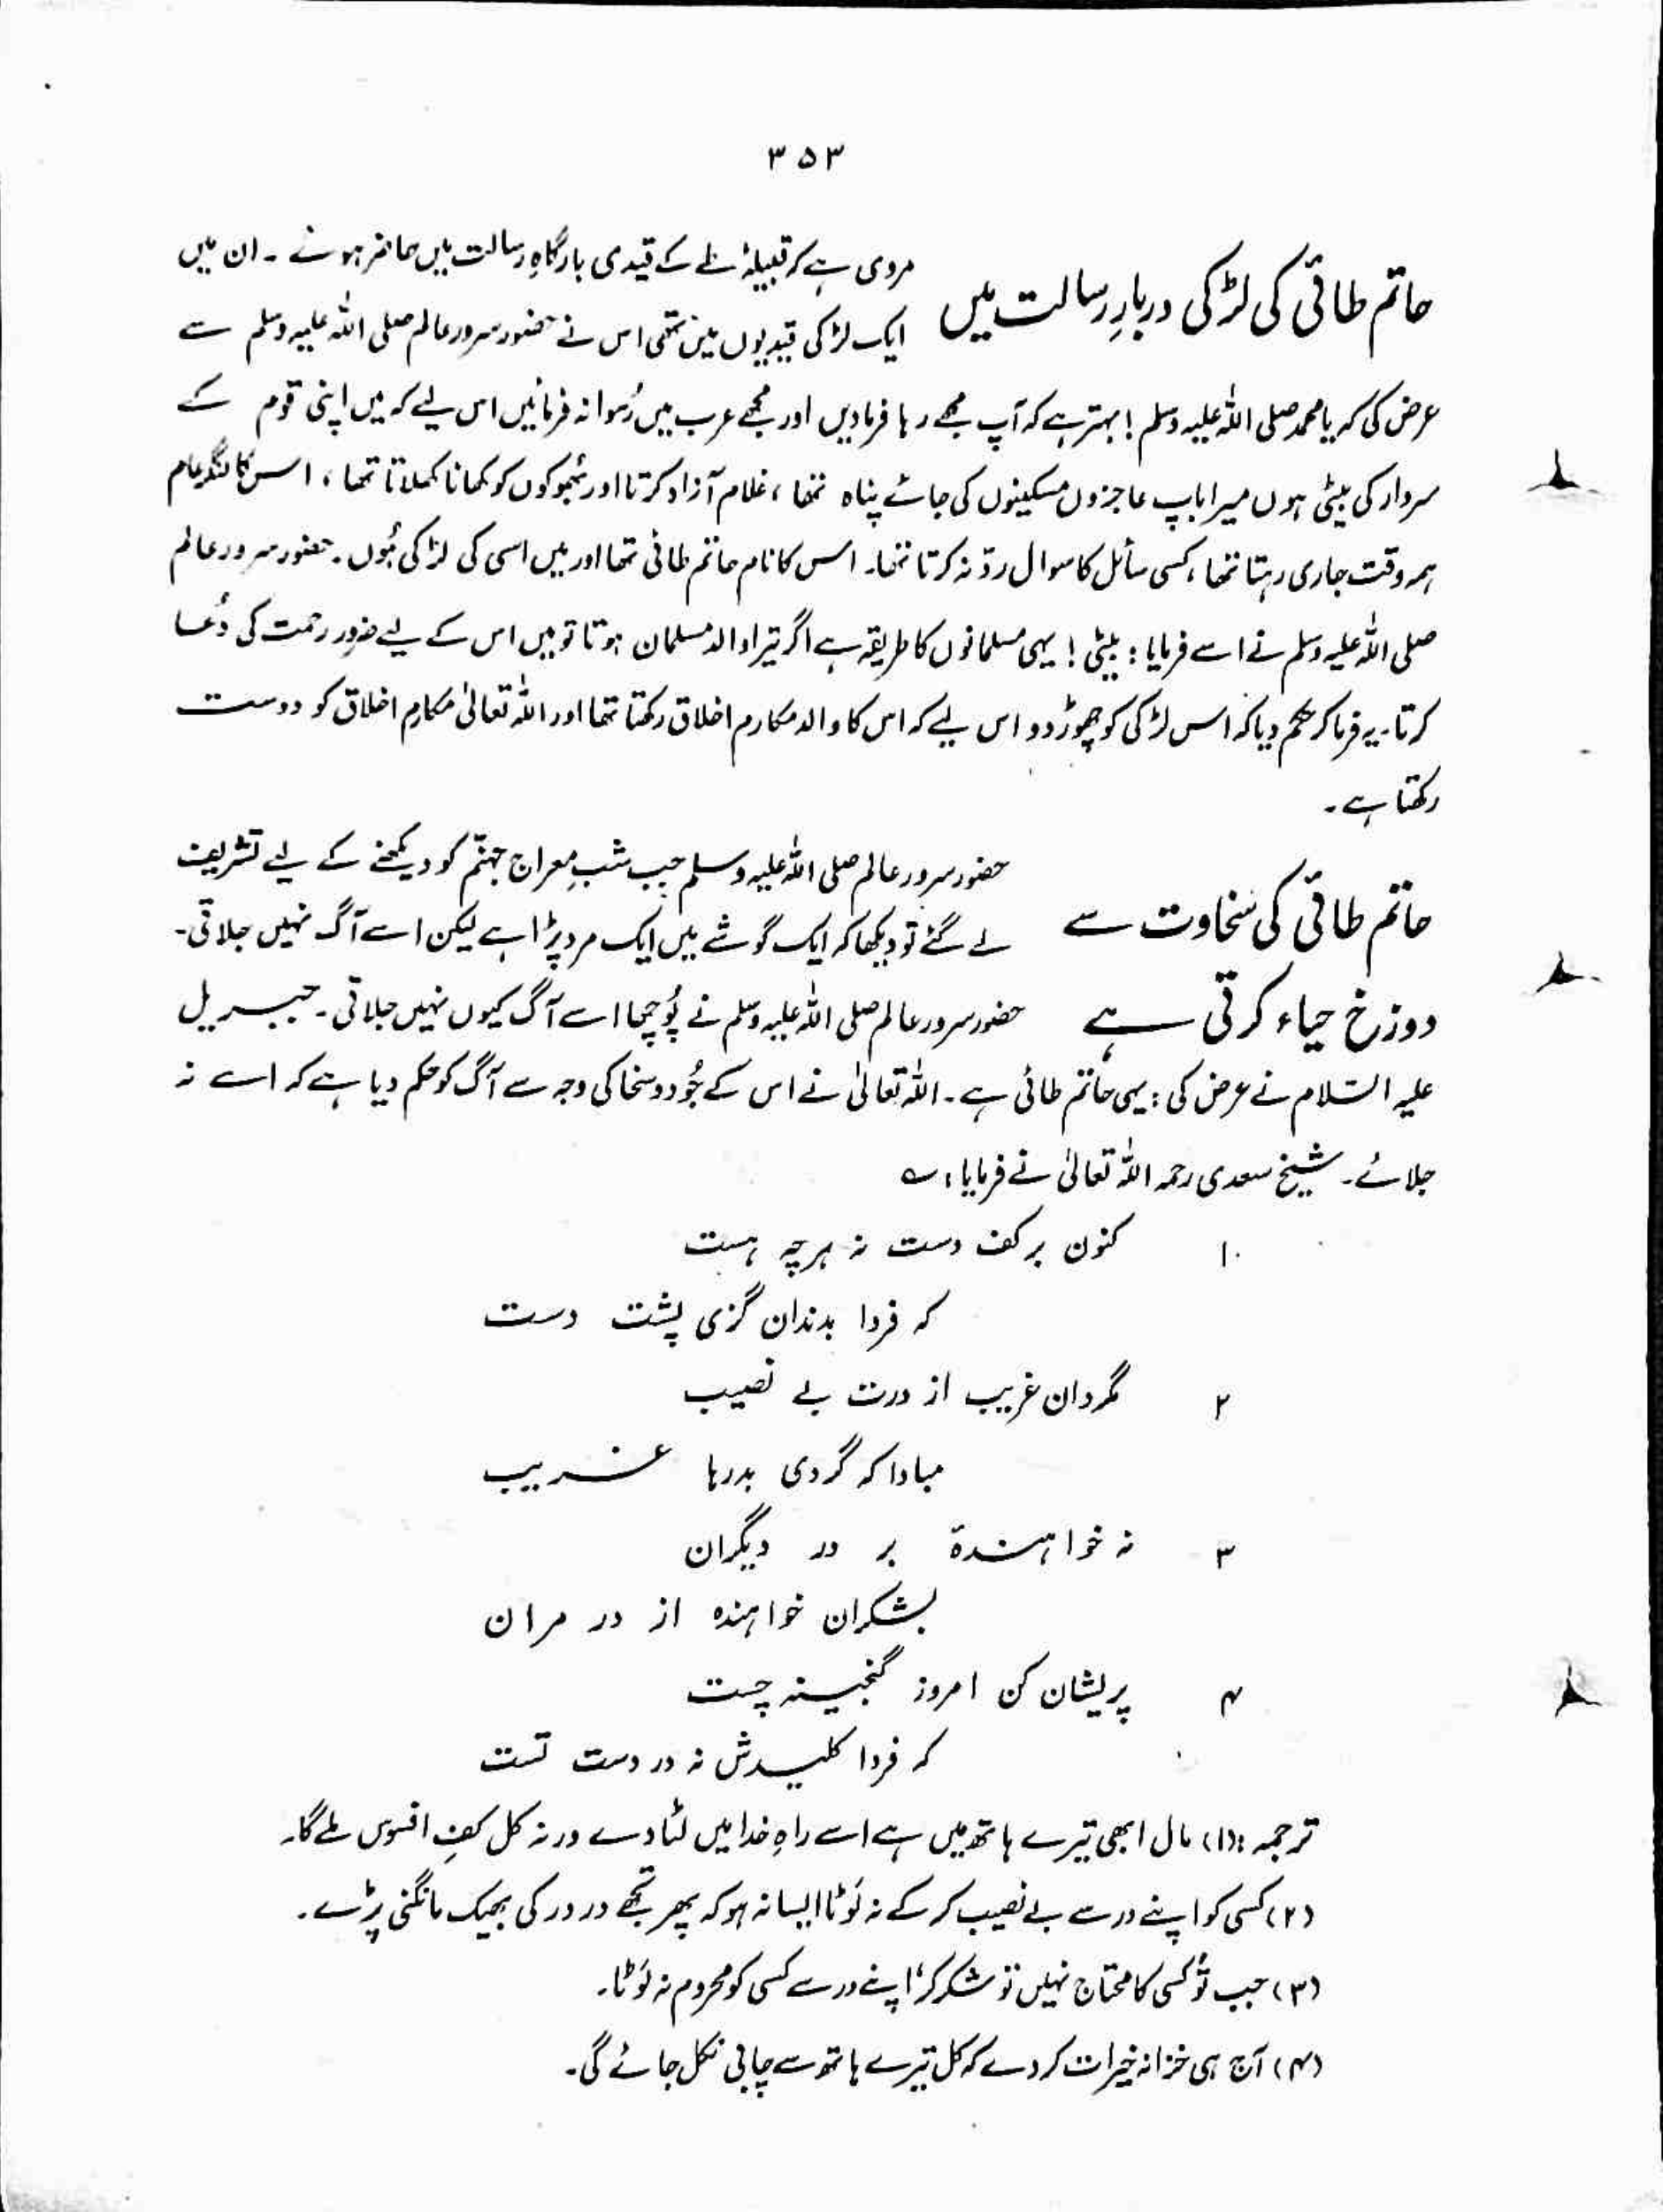 ۳۵۳
حاتم طائی کی لڑکی دربارِ رسالت میں
مروی ہے کہ قبیلۂ طے کے قیدی بارگاہِ رسالت میں حاضر ہوئے ۔ ان میں
ایک لڑکی قیدیوں میں تھی اس نے حضور سرورِ عالم صلی اللہ علیہ وسلم سے
عرض کی کہ یا محمد صلی اللہ علیہ وسلم ! بہتر ہے کہ آپ مجھے رہا فرمادیں اور مجھے عرب میں رُسوا نہ فرمائیں اس لیے کہ میں اپنی قوم کے
سردار کی بیٹی ہوں میرا باپ عاجزوں مسکینوں کی جائے پناہ تھا ، غلام آزاد کرتا اور بُھوکوں کو کھانا کھلاتا تھا ، اس کا لنگر عام
ہمہ وقت جاری رہتا تھا ، کسی سائل کا سوال ردّ نہ کرتا تھا ۔ اس کا نام حاتم طائی تھا اور میں اسی کی لڑکی ہُوں ۔ حضور سرور عالم
صلی اللہ علیہ وسلم نے اسے فرمایا : بیٹی ! یہی مسلمانوں کا طریقہ ہے اگر تیرا والد مسلمان ہوتا تو میں اس کے لیے ضرور رحمت کی دُعا
کرتا ۔ یہ فرما کر حکم دیا کہ اس لڑکی کو چھوڑ دو اس لیے کہ اس کا والد مکارم اخلاق رکھتا تھا اور اللہ تعالیٰ مکارمِ اخلاق کو دوست
رکھتا ہے ۔
حاتم طائی کی سخاوت سے
دوزخ حیاء کرتی ہے
حضور سرور عالم صلی اللہ علیہ وسلم جب شبِ معراج جہنّم کو دیکھنے کے لیے تشریف
لے گئے تو دیکھا کہ ایک گوشے میں ایک مرد پڑا ہے لیکن اسے آگ نہیں جلاتی ۔
حضور سرور عالم صلی اللہ علیہ وسلم نے پُوچھا اسے آگ کیوں نہیں جلاتی ۔ جبریل
علیہ السّلام نے عرض کی : یہی حاتم طائی ہے ۔ اللہ تعالیٰ نے اس کے جُود و سخا کی وجہ سے آگ کو حکم دیا ہے کہ اسے نہ
جلائے ۔ شیخ سعدی رحمہ اللہ تعالیٰ نے فرمایا : ؎
۱ کنون بر کف دست نہ ہرچہ ہست
کہ فردا بدندان گزی پشت دست
۲ مگردان غریب از درت بے نصیب
مبادا کہ گردی بدرہا غریب
۳ نہ خواہندۂ بر در دیگران
بشکران خواہندہ از در مران
۴ پریشان کن امروز گنجینہ چست
کہ فردا کلیدش نہ در دست تست
ترجمہ : (۱) مال ابھی تیرے ہاتھ میں ہے اسے راہِ خدا میں لٹا دے ورنہ کل کفِ افسوس ملے گا ۔
(۲) کسی کو اپنے در سے بے نصیب کر کے نہ لَوٹا ایسا نہ ہو کہ پھر تجھے در در کی بھیک مانگنی پڑے ۔
(۳) جب تُو کسی کا محتاج نہیں تو شکر کر ، اپنے در سے کسی کو محروم نہ لَوٹا ۔
(۴) آج ہی خزانہ خیرات کر دے کہ کل تیرے ہاتھ سے چابی نکل جائے گی ۔